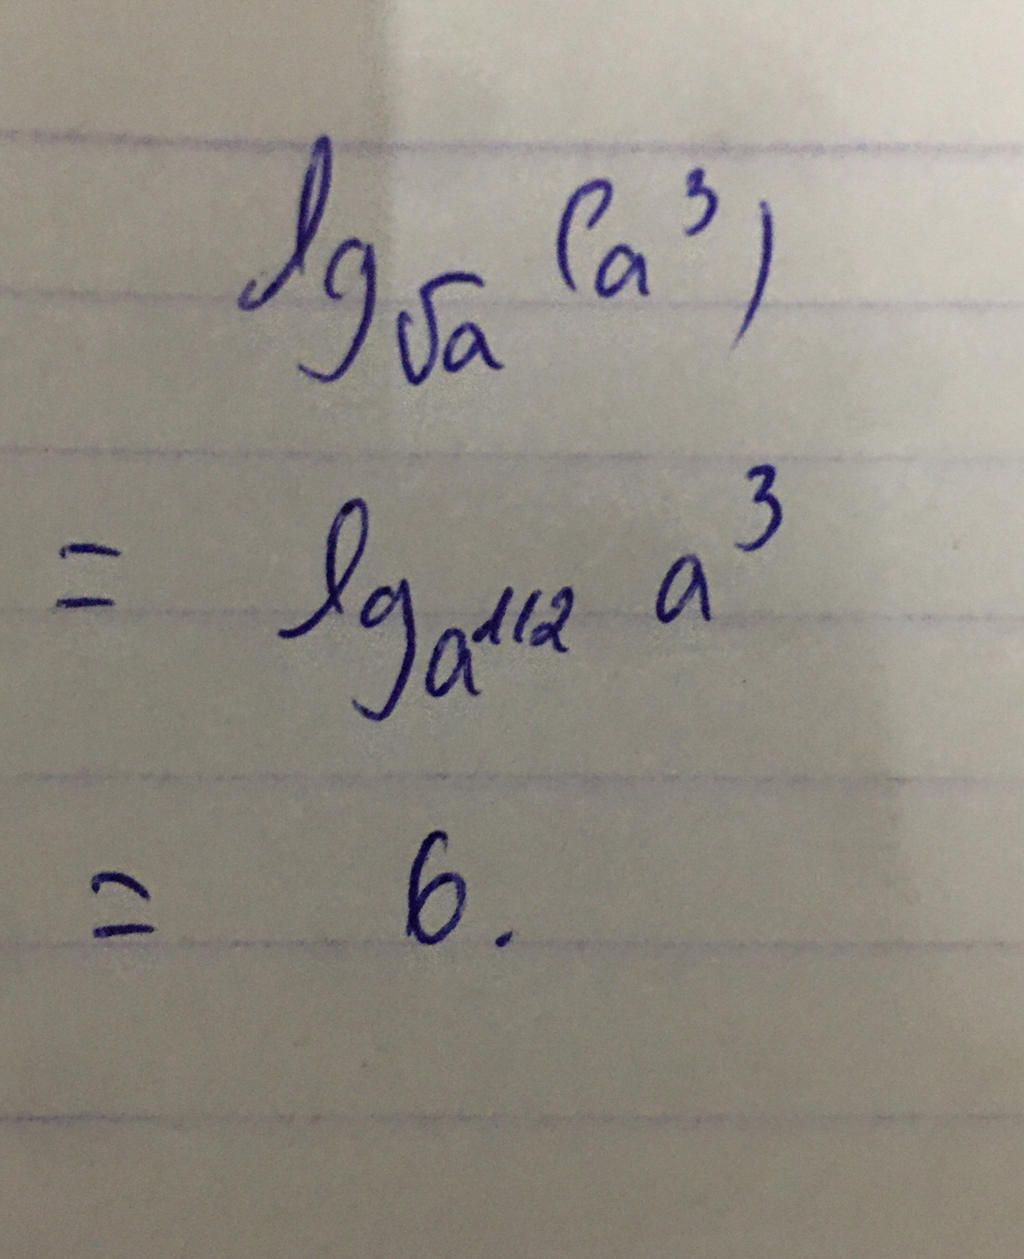 lg√a (a³)
= lg a^1/2 a³
= 6.